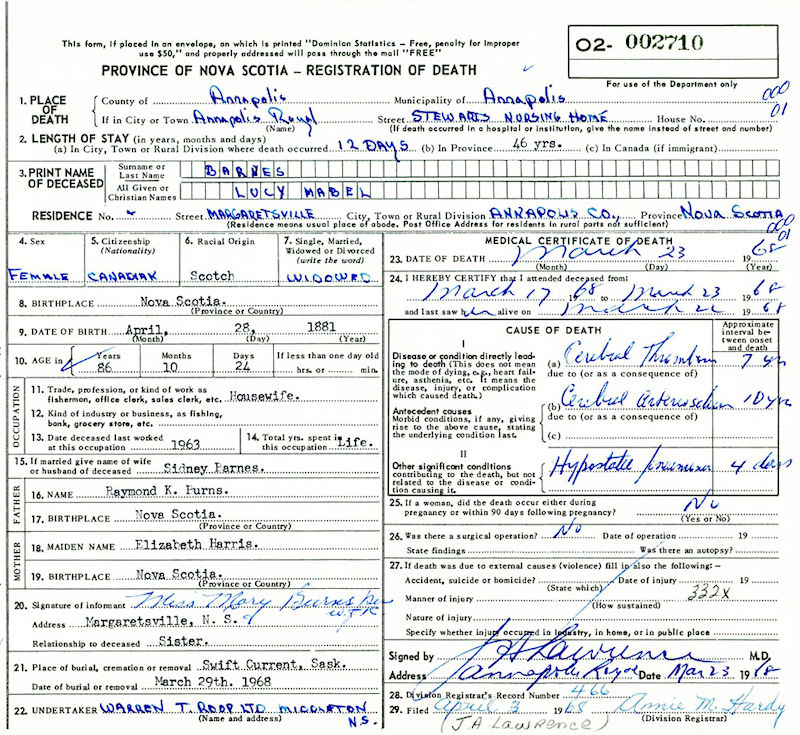 This form, if placed in an envelope, on which is printed "Dominion Statistics – Free, penalty for improper
use $50," and properly addressed will pass through the mail "FREE"
O2- 002710
PROVINCE OF NOVA SCOTIA – REGISTRATION OF DEATH
For use of the Department only
1. PLACE OF DEATH County of Annapolis Municipality of Annapolis 000
If in City or Town Annapolis Royal Street STEWARTS NURSING HOME House No. 01
(Name) (If death occurred in a hospital or institution, give the name instead of street and number)
2. LENGTH OF STAY (in years, months and days)
(a) In City, Town or Rural Division where death occurred 12 DAYS (b) In Province 46 yrs. (c) In Canada (if immigrant)
3. PRINT NAME OF DECEASED Surname or Last Name BARNES
All Given or Christian Names LUCY MABEL
RESIDENCE No. Street MARGARETSVILLE City, Town or Rural Division ANNAPOLIS CO., Province NOVA SCOTIA
(Residence means usual place of abode. Post Office Address for residents in rural parts not sufficient) 000
01
4. Sex 5. Citizenship (Nationality) 6. Racial Origin 7. Single, Married, Widowed or Divorced (write the word)
FEMALE CANADIAN Scotch WIDOWED
8. BIRTHPLACE Nova Scotia.
(Province or Country)
9. DATE OF BIRTH April, 28, 1881
(Month) (Day) (Year)
10. AGE in Years Months Days If less than one day old
86 10 24 hrs. or min.
OCCUPATION
11. Trade, profession, or kind of work as
fishermon, office clerk, sales clerk, etc. Housewife.
12. Kind of industry or business, as fishing,
bank, grocery store, etc.
13. Date deceased last worked at this occupation 1963 14. Total yrs. spent in this occupation Life.
15. If married give name of wife
or husband of deceased Sidney Barnes.
FATHER
16. NAME Raymond K. Burns.
17. BIRTHPLACE Nova Scotia.
(Province or Country)
MOTHER
18. MAIDEN NAME Elizabeth Harris.
19. BIRTHPLACE Nova Scotia.
(Province or Country)
20. Signature of informant Miss Mary Burns
Address Margaretsville, N. S.
Relationship to deceased Sister.
21. Place of burial, cremation or removal Swift Current, Sask.
Date of burial or removal March 29th. 1968
22. UNDERTAKER WARREN T. ROOP LTD MIDDLETON
(Name and address) N.S.
MEDICAL CERTIFICATE OF DEATH
23. DATE OF DEATH March 23 1968
(Month) (Day) (Year)
24. I HEREBY CERTIFY that I attended deceased from:
March 17 1968 to March 23 1968
and last saw her alive on March 22 1968
CAUSE OF DEATH Approximate interval between onset and death
I
Disease or condition directly leading to death (This does not mean the mode of dying, e.g., heart failure, asthenia, etc. It means the disease, injury, or complication which caused death.)
(a) Cerebral Thrombosis 7 yrs
due to (or as a consequence of)
Antecedent causes
Morbid conditions, if any, giving rise to the above cause, stating the underlying condition last.
(b) Cerebral arteriosclerosis 10 yrs
due to (or as a consequence of)
(c)
II
Other significant conditions
contributing to the death, but not related to the disease or condition causing it.
Hypostatic pneumonia 4 days
25. If a woman, did the death occur either during
pregnancy or within 90 days following pregnancy? No
(Yes or No)
26. Was there a surgical operation? No Date of operation 19
State findings Was there an autopsy?
27. If death was due to external causes (violence) fill in also the following:–
Accident, suicide or homicide? Date of injury 19
(State which) 332X
Manner of injury
(How sustained)
Nature of injury
Specify whether injury occurred in industry, in home, or in public place
Signed by J A Lawrence M.D.
Address Annapolis Royal Date Mar 23 1968
28. Division Registrar's Record Number 466
29. Filed April 3 1968 Annie M. Hardy
(J. A LAWRENCE) (Division Registrar)